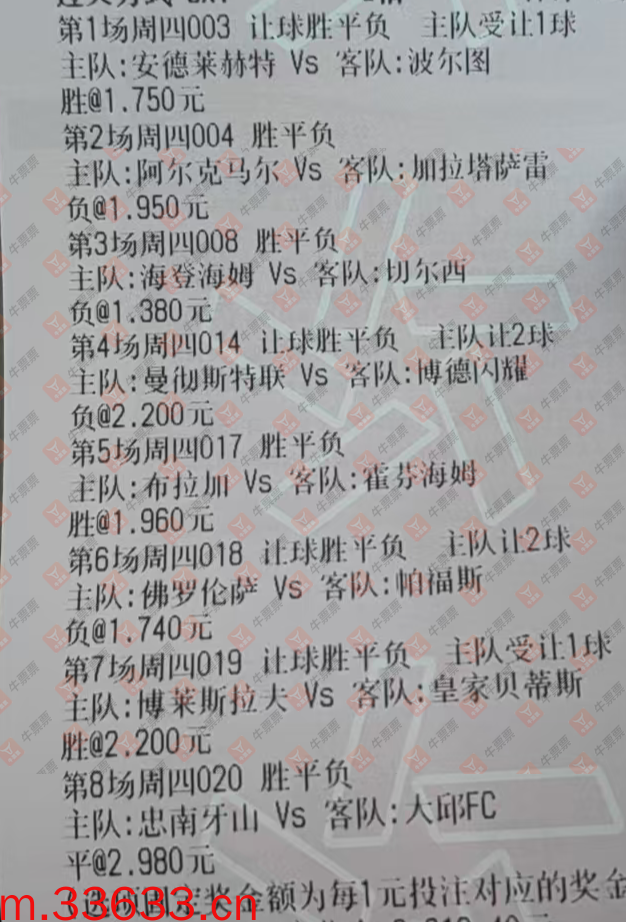 第1场周四003 让球胜平负 主队受让1球
主队:安德莱赫特 Vs 客队:波尔图
胜@1.750元
第2场周四004 胜平负
主队:阿尔克马尔 Vs 客队:加拉塔萨雷
负@1.950元
第3场周四008 胜平负
主队:海登海姆 Vs 客队:切尔西
负@1.380元
第4场周四014 让球胜平负 主队让2球
主队:曼彻斯特联 Vs 客队:博德闪耀
负@2.200元
第5场周四017 胜平负
主队:布拉加 Vs 客队:霍芬海姆
胜@1.960元
第6场周四018 让球胜平负 主队让2球
主队:佛罗伦萨 Vs 客队:帕福斯
负@1.740元
第7场周四019 让球胜平负 主队受让1球
主队:博莱斯拉夫 Vs 客队:皇家贝蒂斯
胜@2.200元
第8场周四020 胜平负
主队:忠南牙山 Vs 客队:大邱FC
平@2.980元
选项固定奖金额为每1元投注对应的奖金
m.33633.cn
牛票票